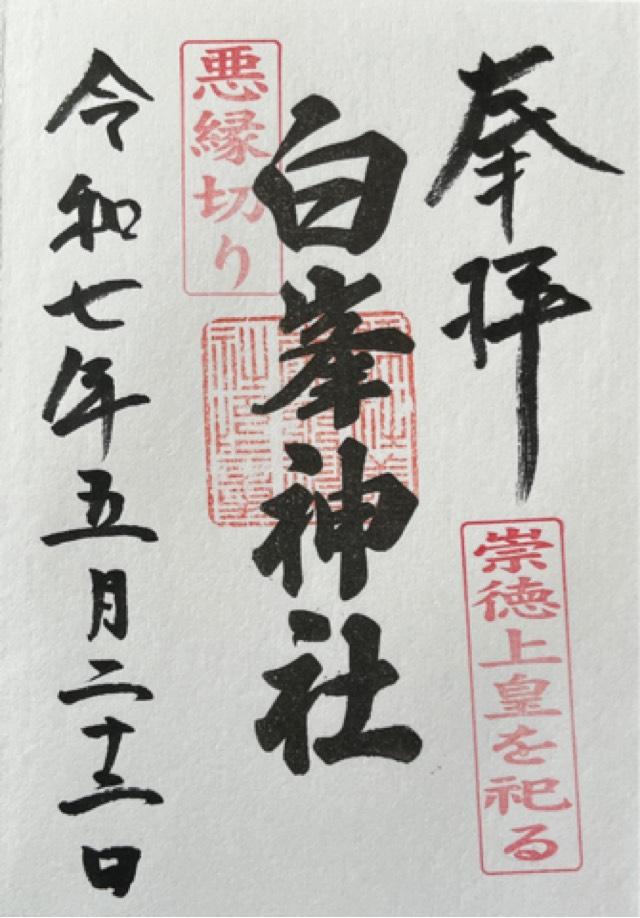 奉拝
崇徳上皇を祀る
白峯神社
悪縁切り
令和七年五月二十二日